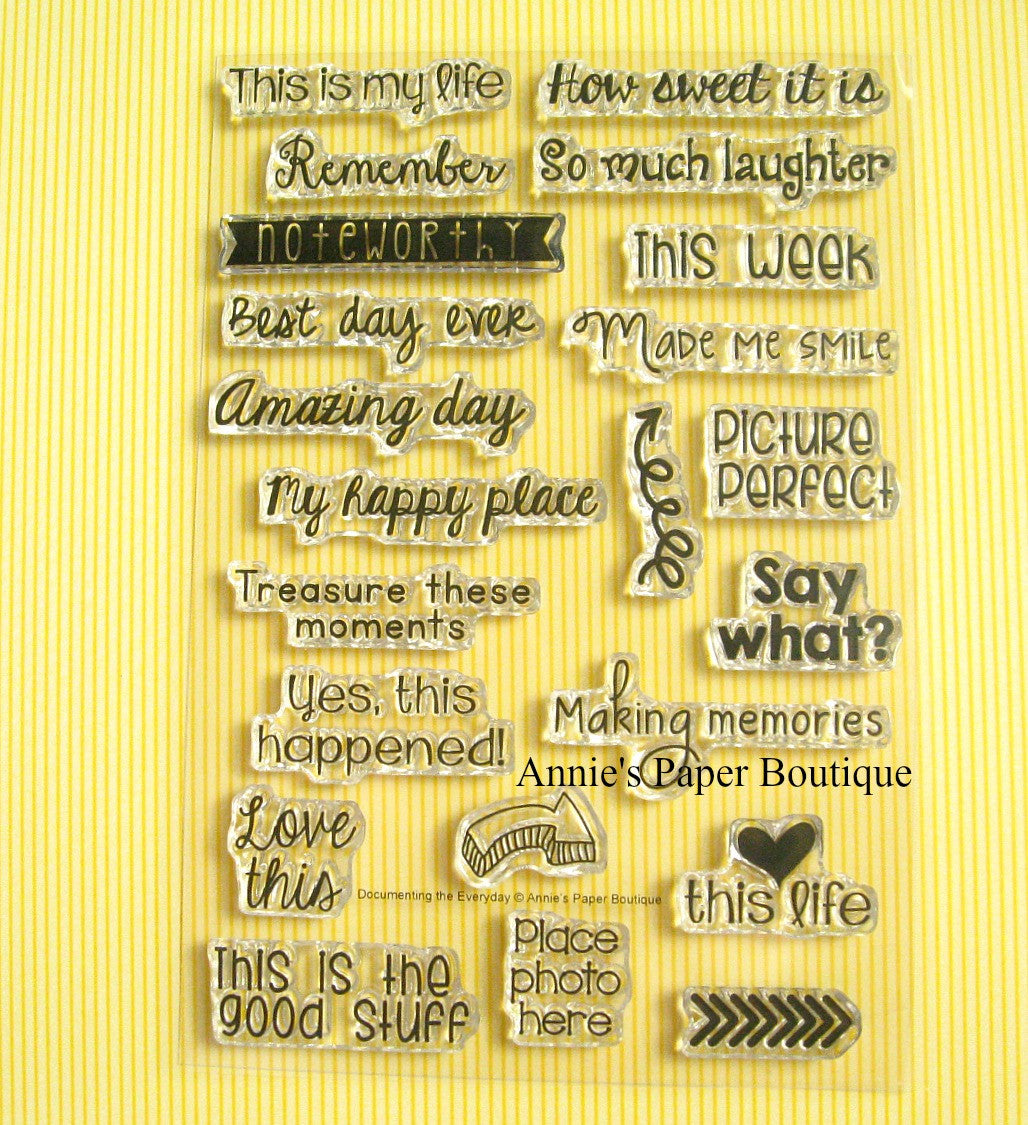 This is my life
How sweet it is
Remember
So much laughter
NOTEWORTHY
THIS WEEK
BEST day EVER
MADE ME SMILE
Amazing day
PICTURE
PERFECT
My happy place
Treasure these
moments
Say
what?
Yes, this
happened!
Making memories
Annie's Paper Boutique
Love
this
this life
Documenting the Everyday © Annie's Paper Boutique
THIS IS the
good STUFF
Place
photo
here